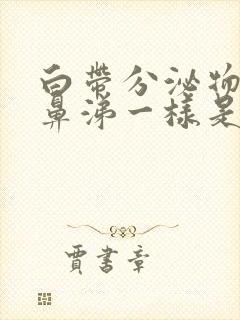 白带分泌物
鼻涕一樣是
賈書章